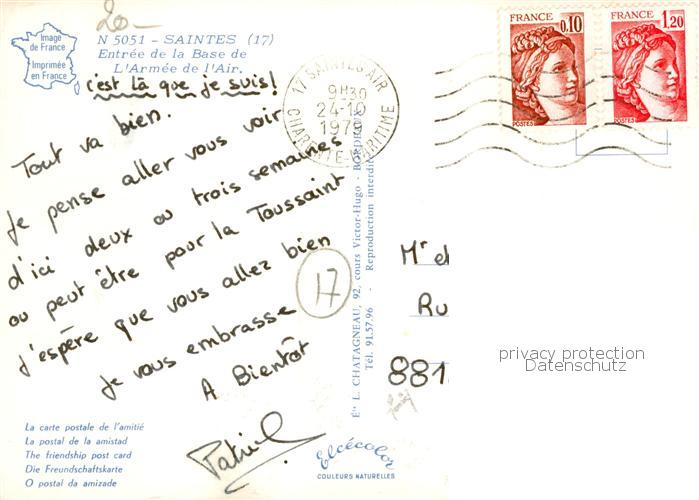 20-
Image
de France
Imprimée
en France
N 5051 - SAINTES (17)
Entrée de la Base de
L'Armée de l'Air.
c'est là que je suis!
Tout va bien.
Je pense aller vous voir
d'ici deux ou trois semaines
ou peut être pour la Toussaint
J'espère que vous allez bien
Je vous embrasse
A Bientôt
La carte postale de l'amitié
La postal de la amistad
The friendship post card
Die Freundschaftskarte
O postal da amizade
17 SAINTES AIR
9H30
24-10
1979
CHARENTE-MARITIME
17
Éts L. CHATAGNEAU, 92, cours Victor-Hugo - BORDEAUX
Tél. 91.57.96 - Reproduction interdite
Elcécolor
COULEURS NATURELLES
FRANCE
0,10
POSTES
FRANCE
1,20
POSTES
Mr et
Ru
881
privacy protection
Datenschutz